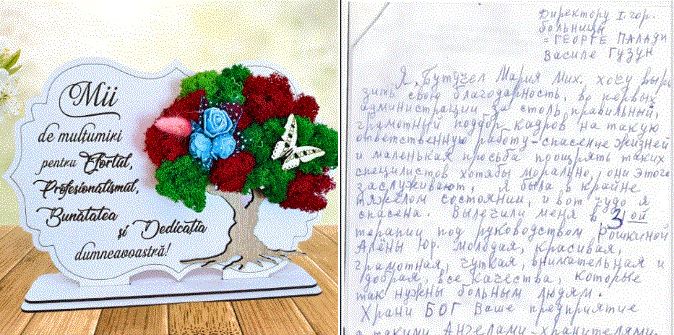 Mii
de mulțumiri
pentru Efortul,
Profesionalismul,
Bunătatea
și Dedicația
dumneavoastră!
Директору I гор.
больницы
ГЕОРГЕ ПАЛАДИ
Василе ГУЗУН
Я, Бутучел Мария Мих. хочу выра
зить свою благодарность, во первых
администрации за столь правильный,
грамотный подбор кадров на такую
ответственную работу-спасение жизней
и маленькая просьба прощрять таких
специлистов хотябы морально, они этого
заслуживают, я была в крайне
тяжелом состоянии, и вот чудо я
спасена. Вылечили меня в 3ой
терапии под руководством Рошкиной
Алёны Юр. молодая, красивая,
грамотная, чуткая, внимательная и
добрая, все качества, которые
так нужны больным людям.
Храни БОГ Ваше предприятие
с такими Ангелами-Хранителями